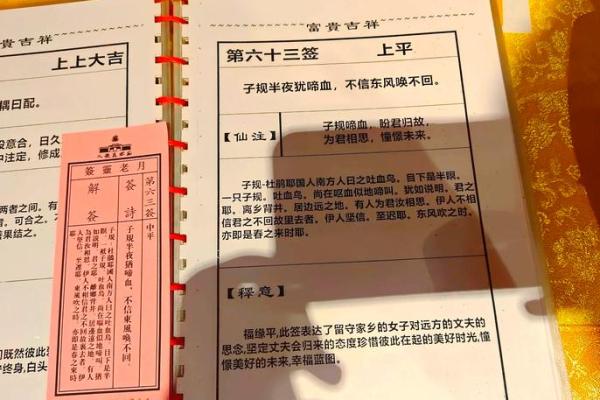 吉祥
上上大吉
偶曰配。
投意合，日久
中注定，修成
两者之间，有
善果结之。
们既然彼此
终身,白头
月老靈簽
第六三簽 中平
簽詩 子規半夜猶啼血，不信東風喚不回。
解簽
子規，杜鵑耶國人南方人曰之吐血鳥。目下是半
如說明。君之耶，離鄉背井，居邊遠之地。有人
為君汝相思。伊人不相信君之不回故里去者。伊
人堅信。至遲耶，東風吹之時，亦即是春之來時
富貴吉祥
第六十三签 上平
子规半夜犹啼血，不信东风唤不回。
【仙注】
子规啼血，盼君归故，
为君相思，憧憬未来。
子规-杜鹃耶国人南方人曰之吐血鸟。目下是半限。
一只子规。吐血鸟。尚在呕血似地啼叫。犹如说明。君之
耶。离乡背井。居边远之地。有人为君汝相思。伊人不相
信君之不回故里去者。伊人坚信。至迟耶。东风吹之时。
亦即是春之来时耶。
【釋意】
福缘平,此签表达了留守家乡的女子对远方的丈夫的
思念,坚定丈夫会归来的态度珍惜彼此在起的美好时光,憧
憬美好的未来,幸福蓝图。